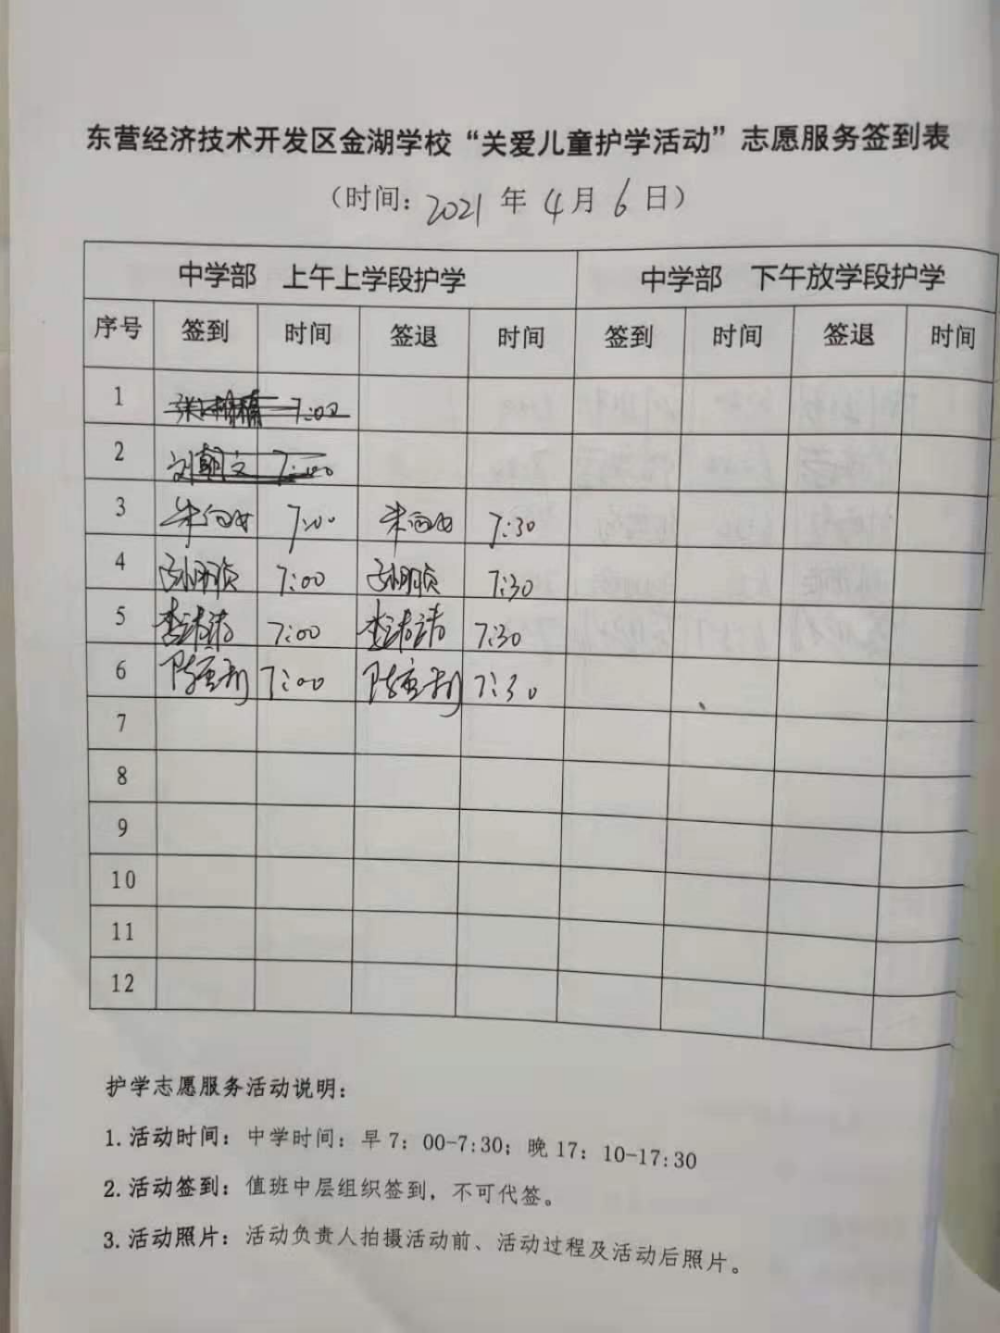 东营经济技术开发区金湖学校“关爱儿童护学活动”志愿服务签到表
（时间：2021 年 4 月 6 日）
中学部 上午上学段护学 中学部 下午放学段护学
序号 签到 时间 签退 时间 签到 时间 签退 时间
1 7:00
2 刘朝文 7:00
3 7:00 7:30
4 7:00 7:30
5 李洁洁 7:00 李洁洁 7:30
6 7:00 7:30
7
8
9
10
11
12
护学志愿服务活动说明：
1.活动时间：中学时间：早 7：00-7:30；晚 17：10-17:30
2.活动签到：值班中层组织签到，不可代签。
3.活动照片：活动负责人拍摄活动前、活动过程及活动后照片。